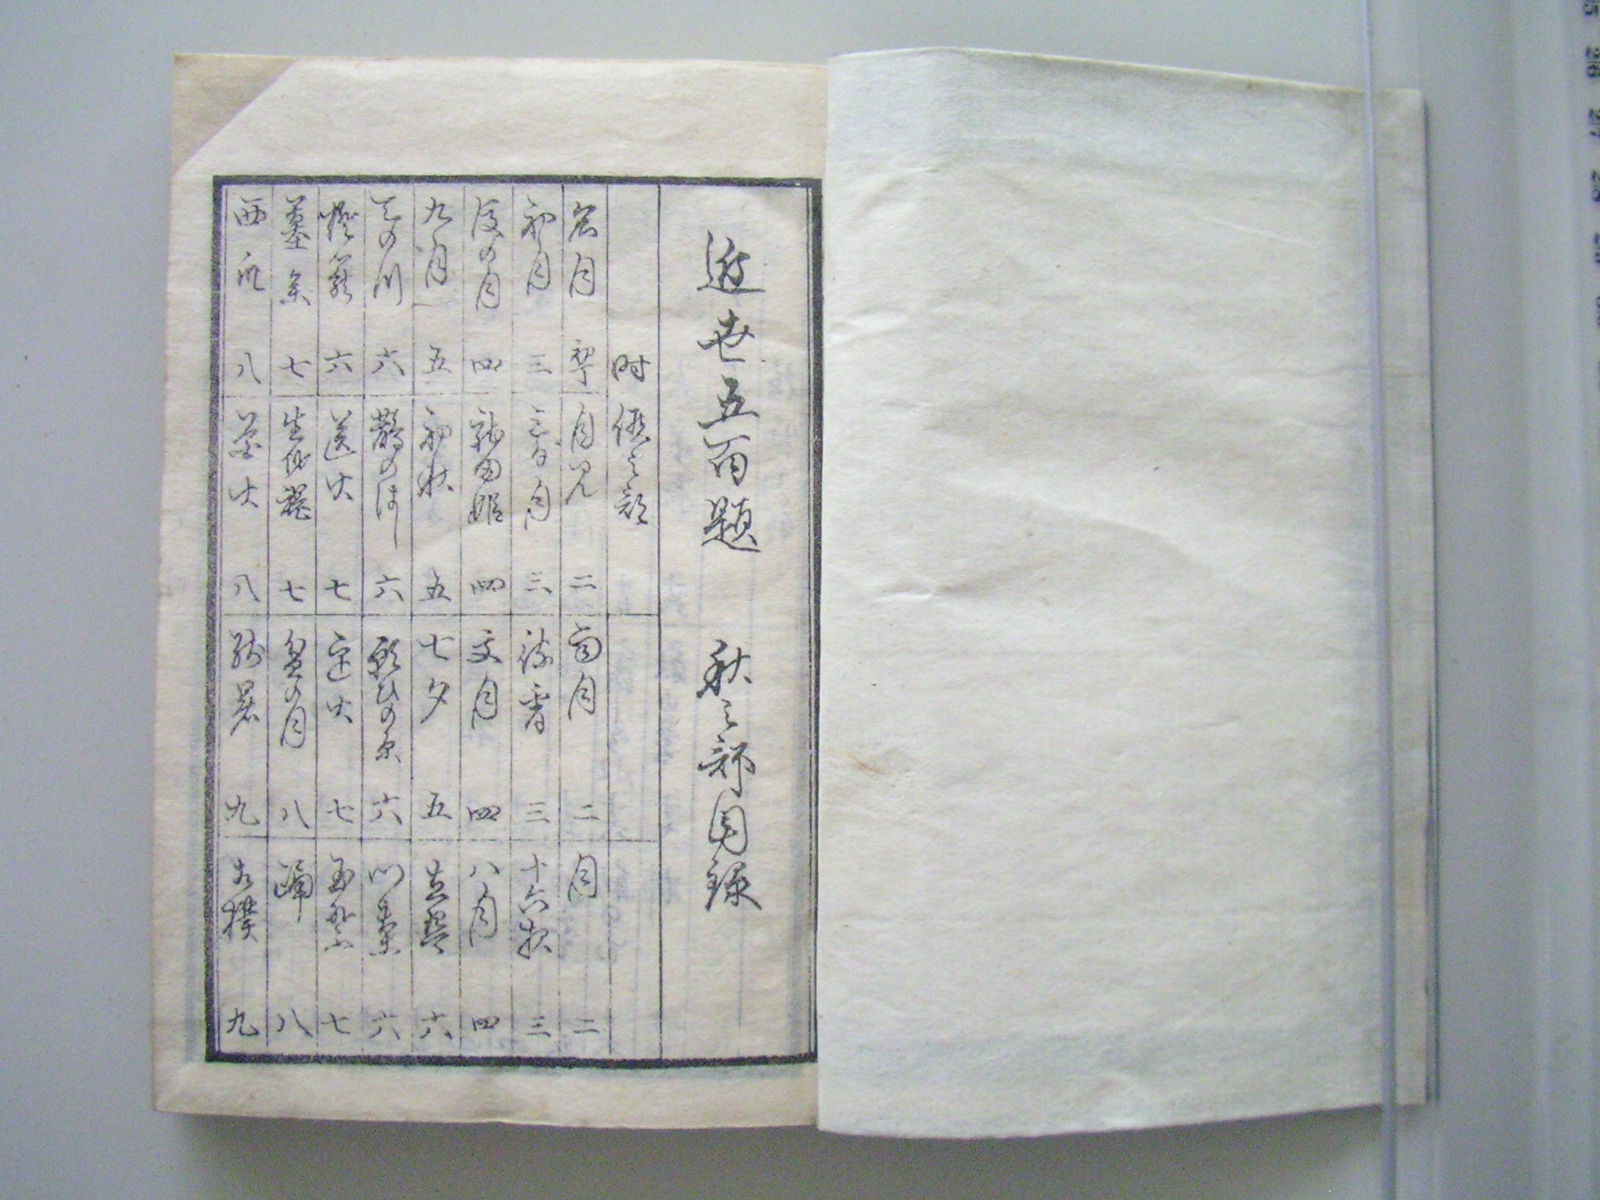 近世五百題 秋之部目録
時候之部
月 初丁 月見 二 雨月 二 月 二
初月 三 三日月 三 待宵 三 十六夜 三
後の月 四 龍田姫 四 文月 四 八月 四
九月 五 初秋 五 七夕 五 六
天の川 六 鵲のはし 六 願ひの糸 六 六
燈籠 六 送火 七 迎火 七 玉祭 七
墓参 七 生身魂 七 盆の月 八 踊 八
西瓜 八 花火 八 残暑 九 相撲 九
26
27
28